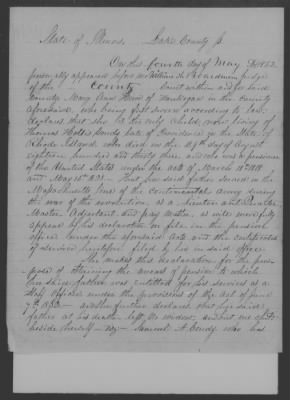 State of Illinois, Lake County ss
On this fourth day of May AD 1852
personally appeared before me William A. Boardman judge
of the County Court within and for said
County Mary Ann How of Waukegan in the County
aforesaid, who being first sworn according to law
declares that she is the only child now living of
Thomas Hollis Condy late of Providence in the State of
Rhode Island who died on the 24th day of August
eighteen hundred and thirty three and who was a pensioner
of the United States under the acts of March 18th 1818
and May 1st 1820. That her said father served in the
Massachusetts line of the continental army during
the war of the revolution as a Lieutenant and Quarter
Master, Adjutant and pay master, as will more fully
appear by his declaration on file in the pension
office under the aforesaid Acts and the certificates
of service heretofore filed by him in said office.
She makes this declaration for the pur-
pose of obtaining the arrears of pension to which
her said father was entitled for his services as a
Staff Officer under the provisions of the act of June
7th 1832 and further declares that her said
father at his death left no widow, and but one child
beside herself viz Samuel H. Condy who has